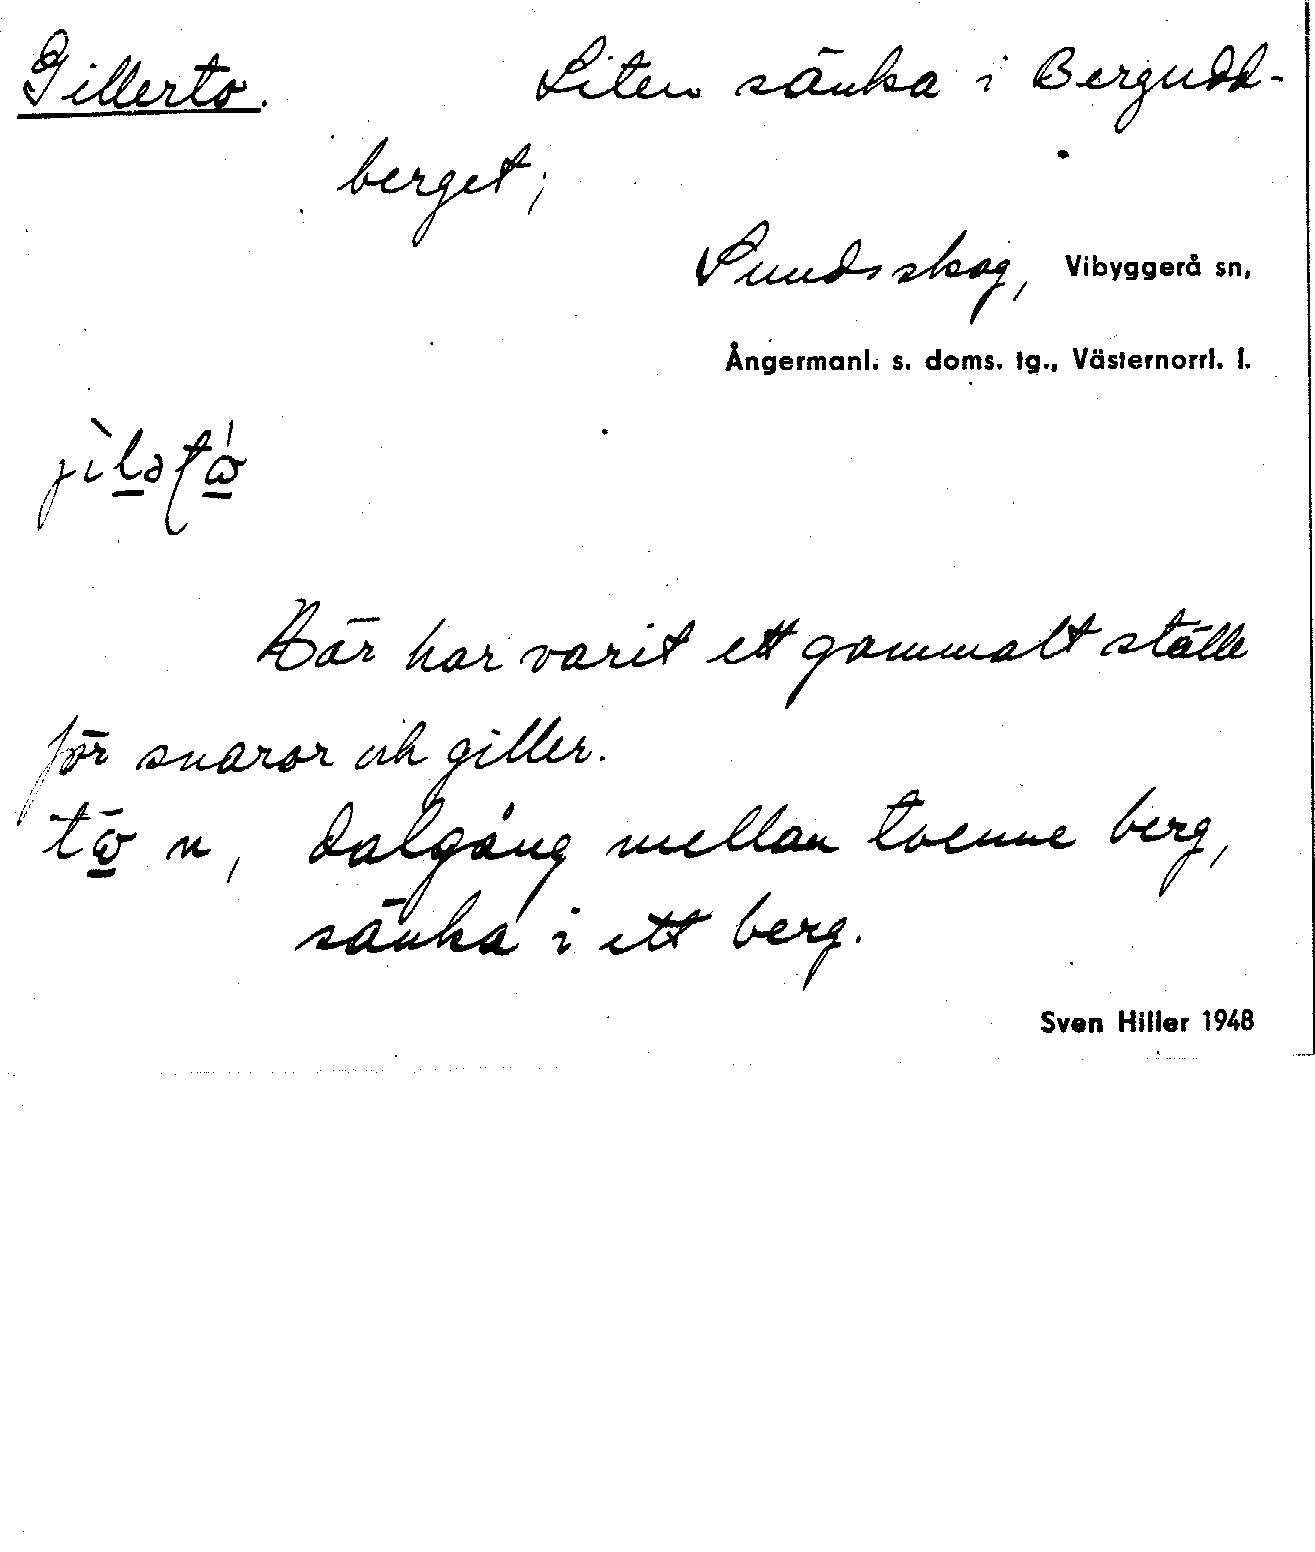 Gillerto. Liten sänka i Bergudd-
berget;
Sundsskog, Vibyggerå sn,
Ångermanl. s. doms. tg., Västernorrl. l.
Här har varit ett gammalt ställe
för snaror och giller.
n, dalgång mellan tvenne berg,
sänka i ett berg.
Sven Hiller 1948